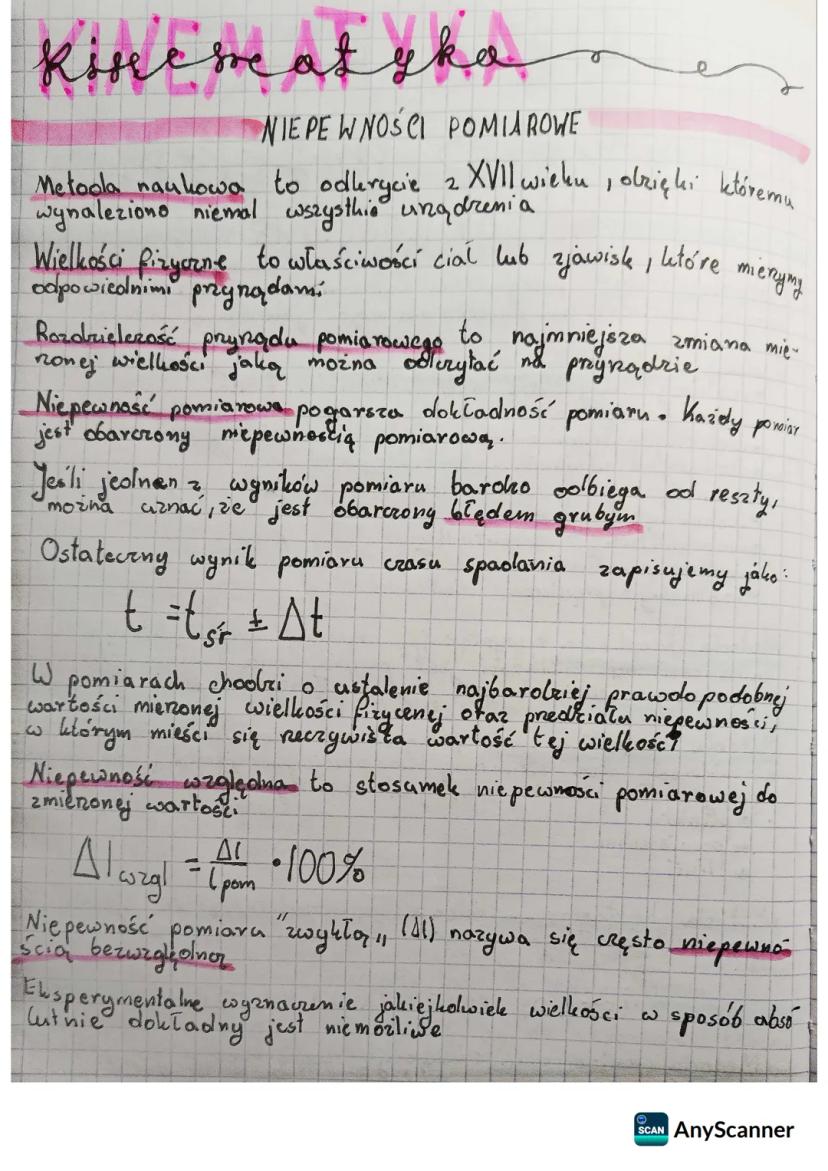 KINEMATYKA
kinematyka
NIEPEWNOŚCI POMIAROWE
Metoda naukowa to odkrycie z XVII wieku, dzięki któremu
wynaleziono niemal wszystkie urządzenia
Wielkości fizyczne to właściwości ciał lub zjawisk, które mierzymy
odpowiednimi przyrządami
Rozdzielczość przyrządu pomiarowego to najmniejsza zmiana mie-
rzonej wielkości jaką można odczytać na przyrządzie
Niepewność pomiarowa pogarsza dokładność pomiaru. Każdy pomiar
jest obarczony niepewnością pomiarową.
Jeśli jeden z wyników pomiaru bardzo odbiega od reszty,
można uznać, że jest obarczony błędem grubym
Ostateczny wynik pomiaru czasu spadania zapisujemy jako:
t = tśr ± Δt
W pomiarach chodzi o ustalenie najbardziej prawdopodobnej
wartości mierzonej wielkości fizycznej oraz przedziału niepewności,
w którym mieści się rzeczywista wartość tej wielkości
Niepewność względna to stosunek niepewności pomiarowej do
zmierzonej wartości
Δl wzgl = Δl / l pom · 100%
Niepewność pomiaru "zwykłą„ (Δl) nazywa się często niepewno-
ścią bezwzględną
Eksperymentalne wyznaczenie jakiejkolwiek wielkości w sposób abso
lutnie dokładny jest niemożliwe
SCAN AnyScanner